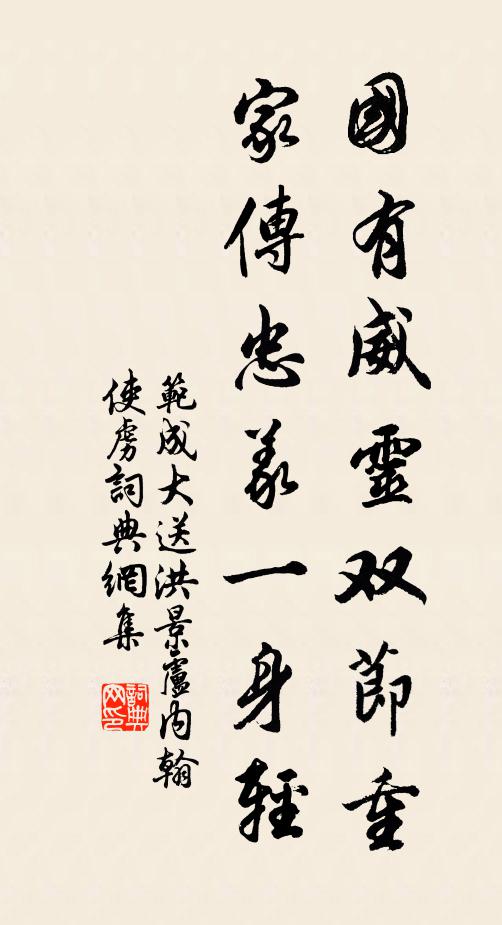 國有威靈双節重
家傳忠義一身輕
範成大送洪景廬內翰
使虜詞典網集
詞典网印